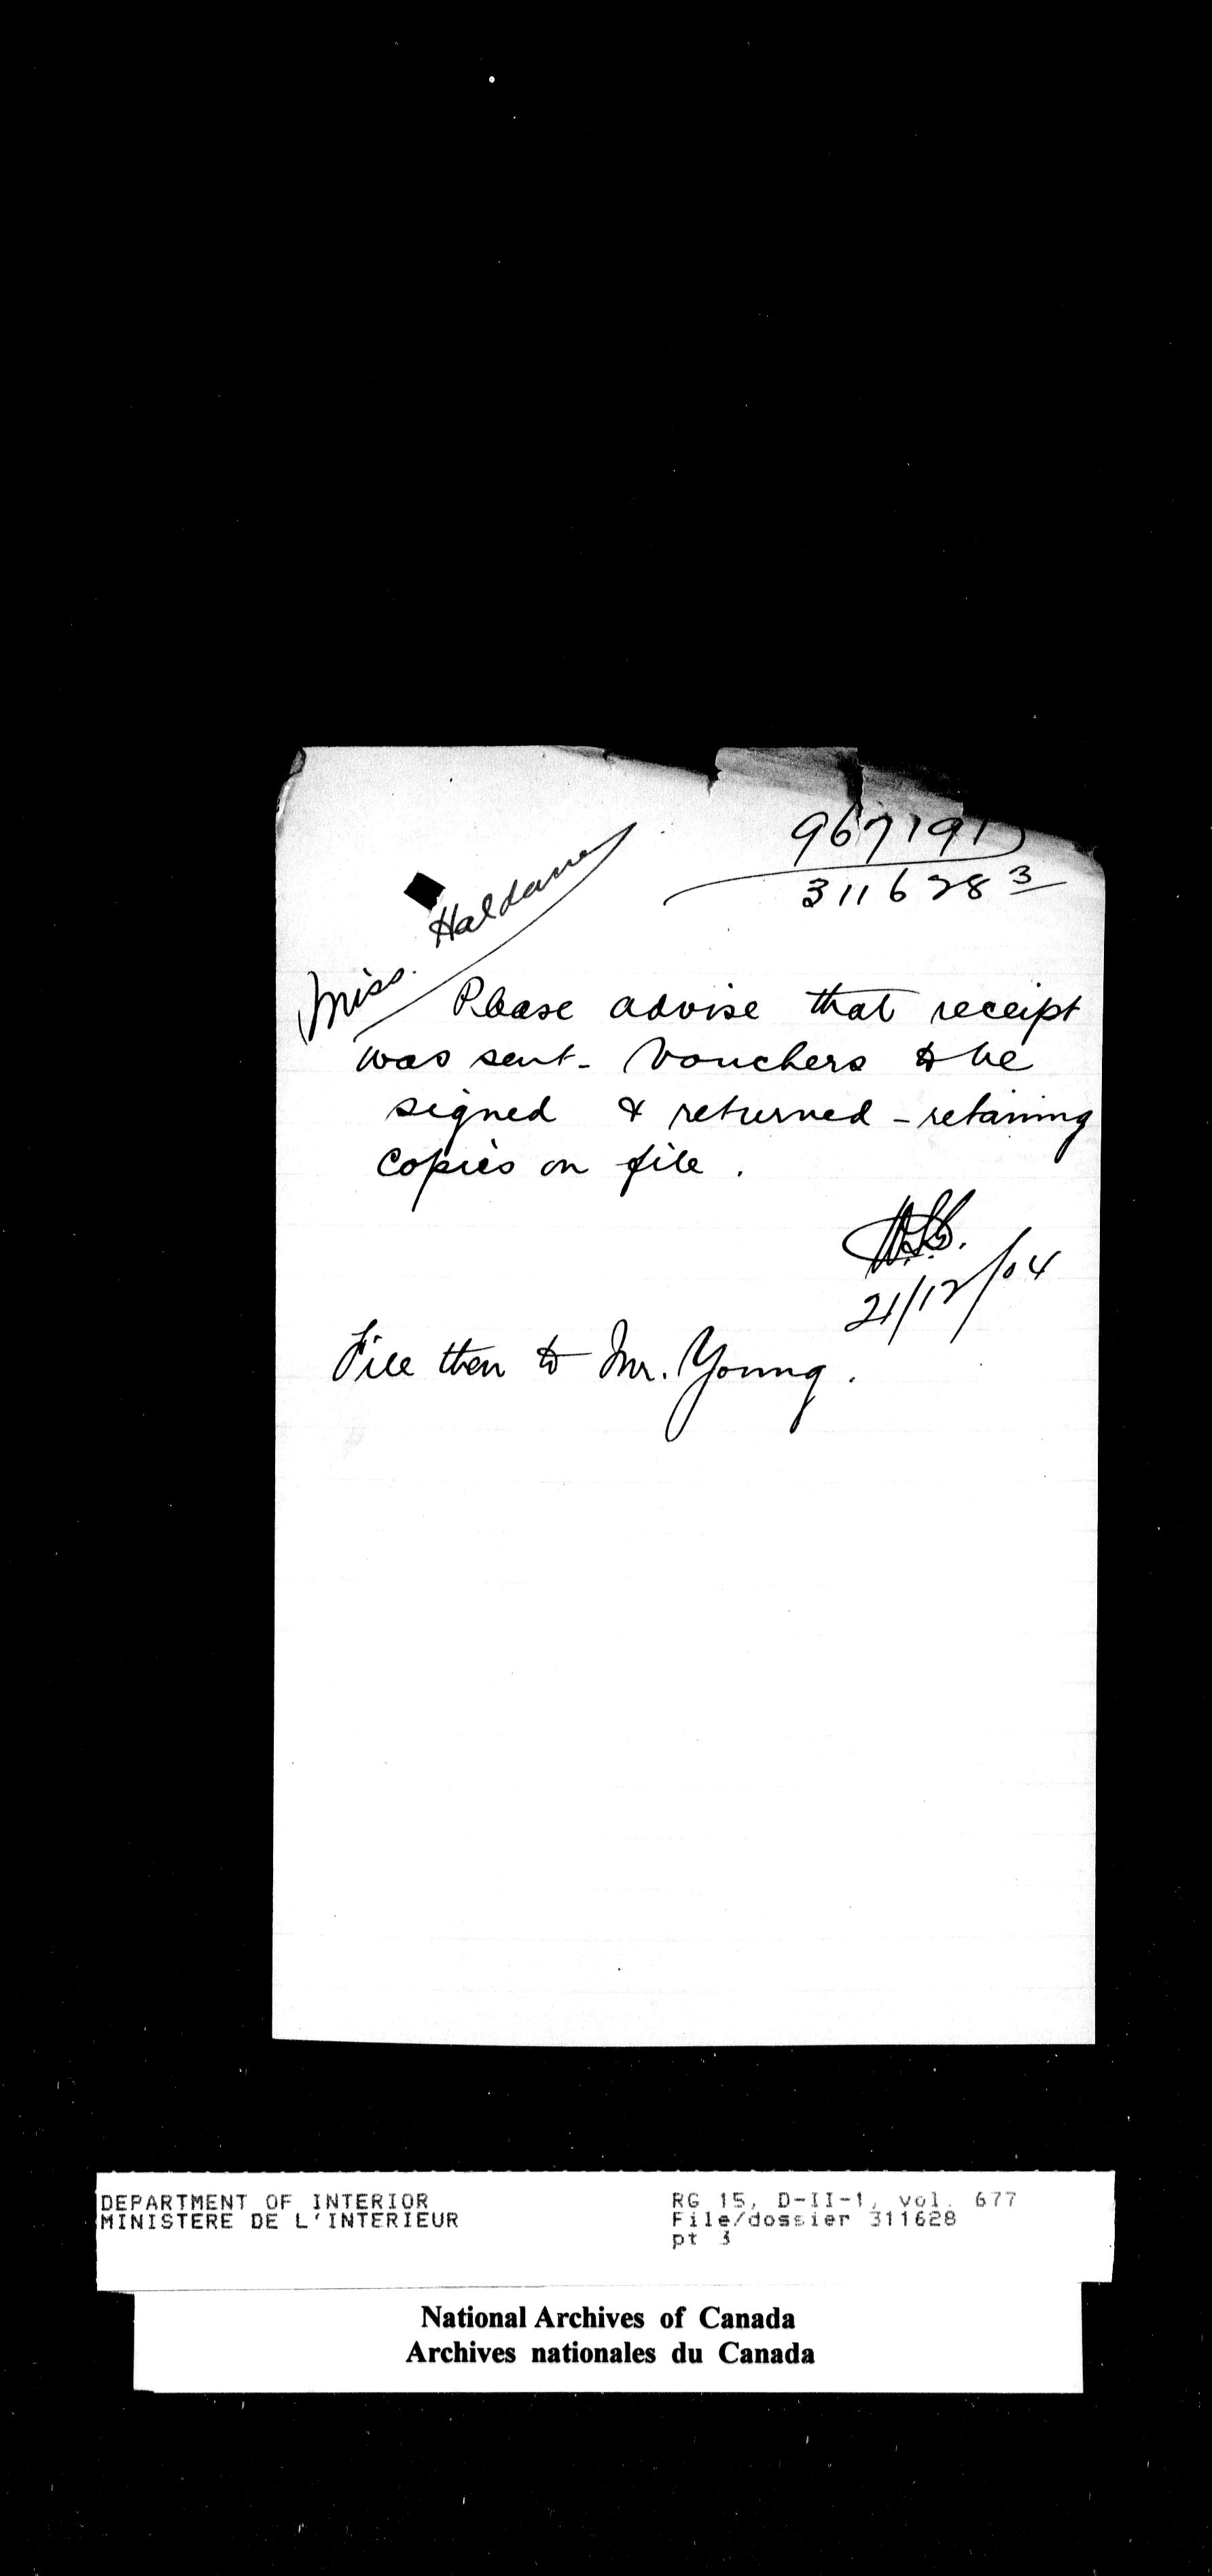 967191
311628 3
Miss. Haldane
Please advise that receipt
was sent - Vouchers to be
signed & returned - retaining
copies on file.
21/12/04
File then to Mr. Young.
DEPARTMENT OF INTERIOR
MINISTERE DE L'INTERIEUR
RG 15, D-II-1, vol. 677
File/dossier 311628
pt 3
National Archives of Canada
Archives nationales du Canada